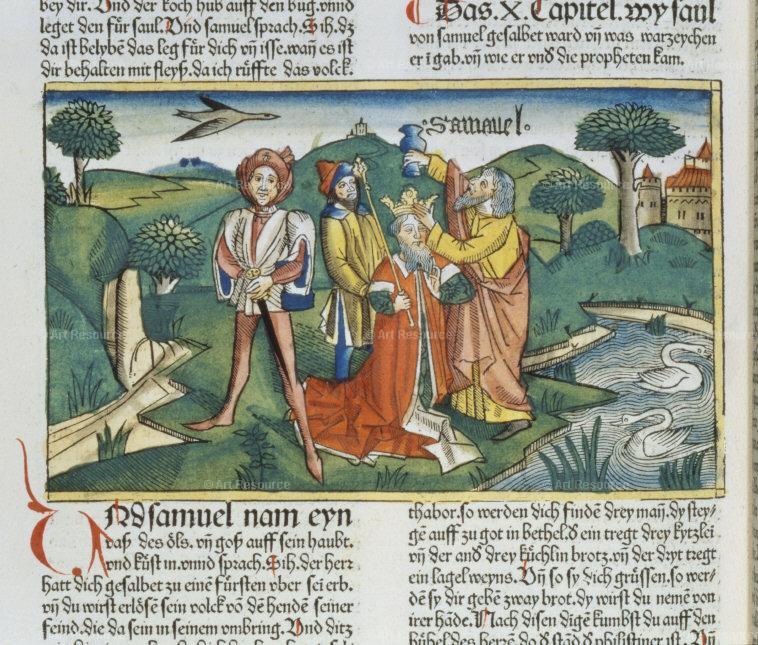 bey dir. Und der koch hub auff den bug. vnnd
leget den für saul. Und samuel sprach. Sih. dz
da ist belybē das leg für dich vn̄ isse. wañ es ist
dir behalten mit fleyß. da ich rüffte das volck.
Das. X. Capitel. wy saul
von samuel gesalbet ward vn̄ was warzeychen
er ī gab. vn̄ wie er vnd die propheten kam.
·Samuel·
Und samuel nam eyn
vaß des öls. vn̄ goß auff sein haubt.
vnd küst in. vnnd sprach. Sih. der herr
hatt dich gesalbet zu einē fürsten vber sei erb.
vn̄ du wirst erlösē sein volck vō dē hendē seiner
feind. die da sein in seinem vmbring. Und ditz
thabor. so werden dich findē drey mañ. dy stey-
gē auff zu got in bethel. d ein tregt drey kytzlei
vn̄ der and drey küchlin brotz. vn̄ der dryt tregt
ein lagel weyns. Vn̄ so sy dich grüssen. so wer-
dē sy dir gebē zway brot. dy wirst du nemē von
irer hāde. Nach disen digē kumbst du auff den
bühel des herrē. da d stād d philistiner ist. Vn̄
© Art Resource